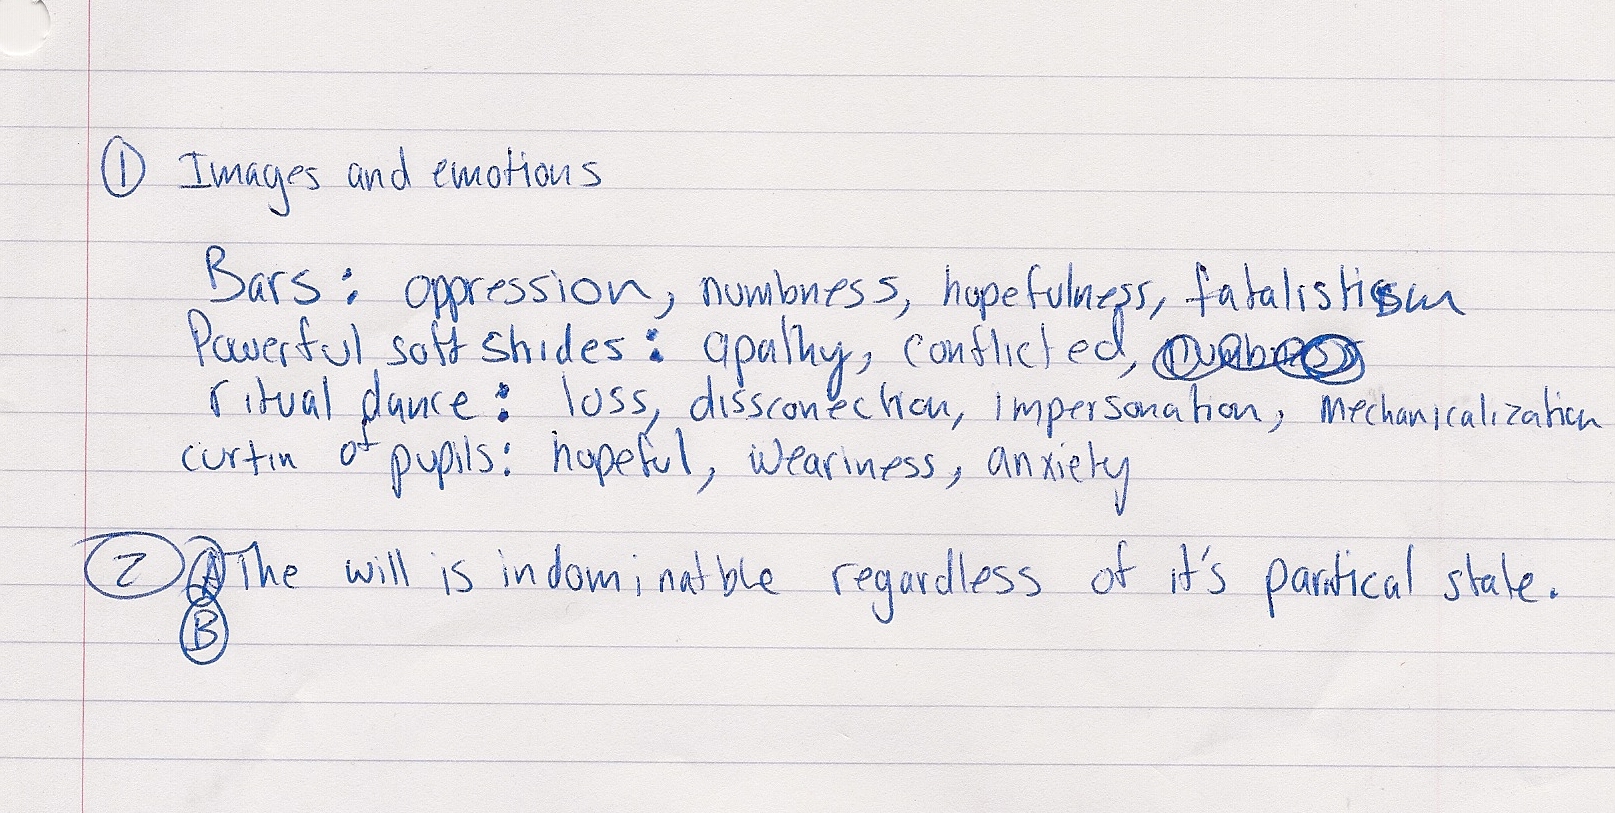 ① Images and emotions
Bars: oppression, numbness, hopefulness, fatalistism
Powerful soft shides: apathy, conflicted,
ritual dance: loss, dissconection, impersonation, mechanicalization
curtin of pupils: hopeful, weariness, anxiety
② Ⓐ The will is indominatble regardless of it's partical state.
Ⓑ